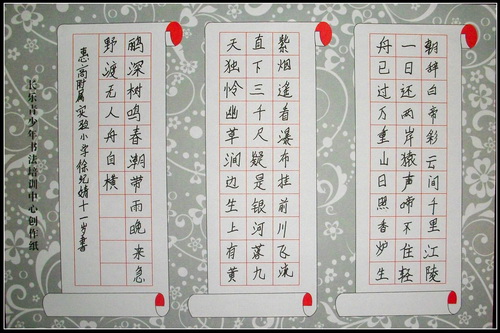 朝辞白帝彩云间千里江陵
一日还两岸猿声啼不住轻
舟已过万重山日照香炉生
紫烟遥看瀑布挂前川飞流
直下三千尺疑是银河落九
天独怜幽草涧边生上有黄
鹂深树鸣春潮带雨晚来急
野渡无人舟自横
惠高附属实验小学徐婧十一岁书
长乐青少年书法培训中心创作纸